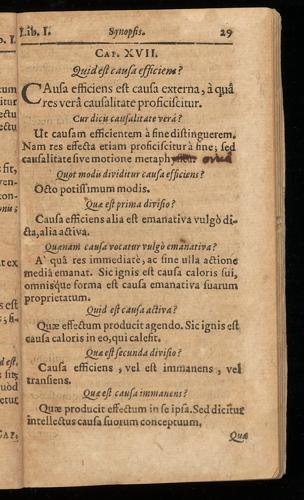 Lib. I. Synopsis. 29
CAP. XVII.
Quid est causa efficiens?
CAusa efficiens est causa externa, à quâ
res verâ causalitate proficiscitur.
Cur dicis causalitate verâ?
Ut causam efficientem à fine distinguerem.
Nam res effecta etiam proficiscitur à fine; sed
causalitate sive motione metaph
Quot modis dividitur causa efficiens?
Octo potissimum modis.
Quæ est prima divisio?
Causa efficiens alia est emanativa vulgò di-
cta, alia activa.
Quænam causa vocatur vulgò emanativa?
A' quâ res immediatè, ac sine ulla actione
mediâ emanat. Sic ignis est causa caloris sui,
omnisque forma est causa emanativa suarum
proprietatum.
Quid est causa activa?
Quæ effectum producit agendo. Sic ignis est
causa caloris in eo, qui calefit.
Quæ est secunda divisio?
Causa efficiens, vel est immanens, vel
transiens.
Quæ est causa immanens?
Quæ producit effectum in se ipsa. Sed dicitur
intellectus causa suorum conceptuum,
Quæ